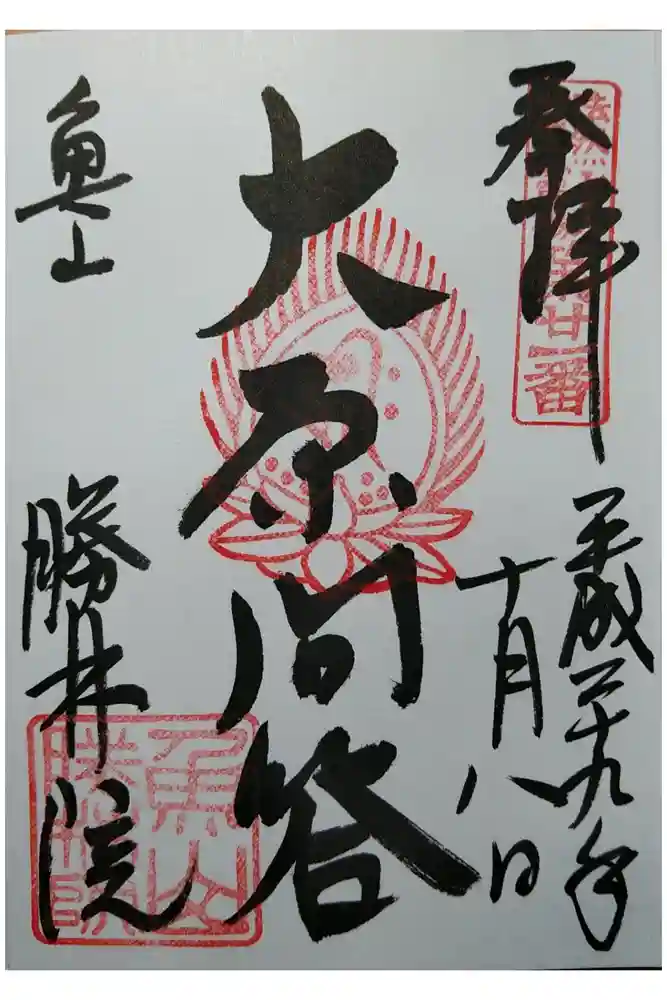 奉拝
平成二十九年
十月八日
大原問答
魚山
勝林院
廿一番
魚山
勝林院